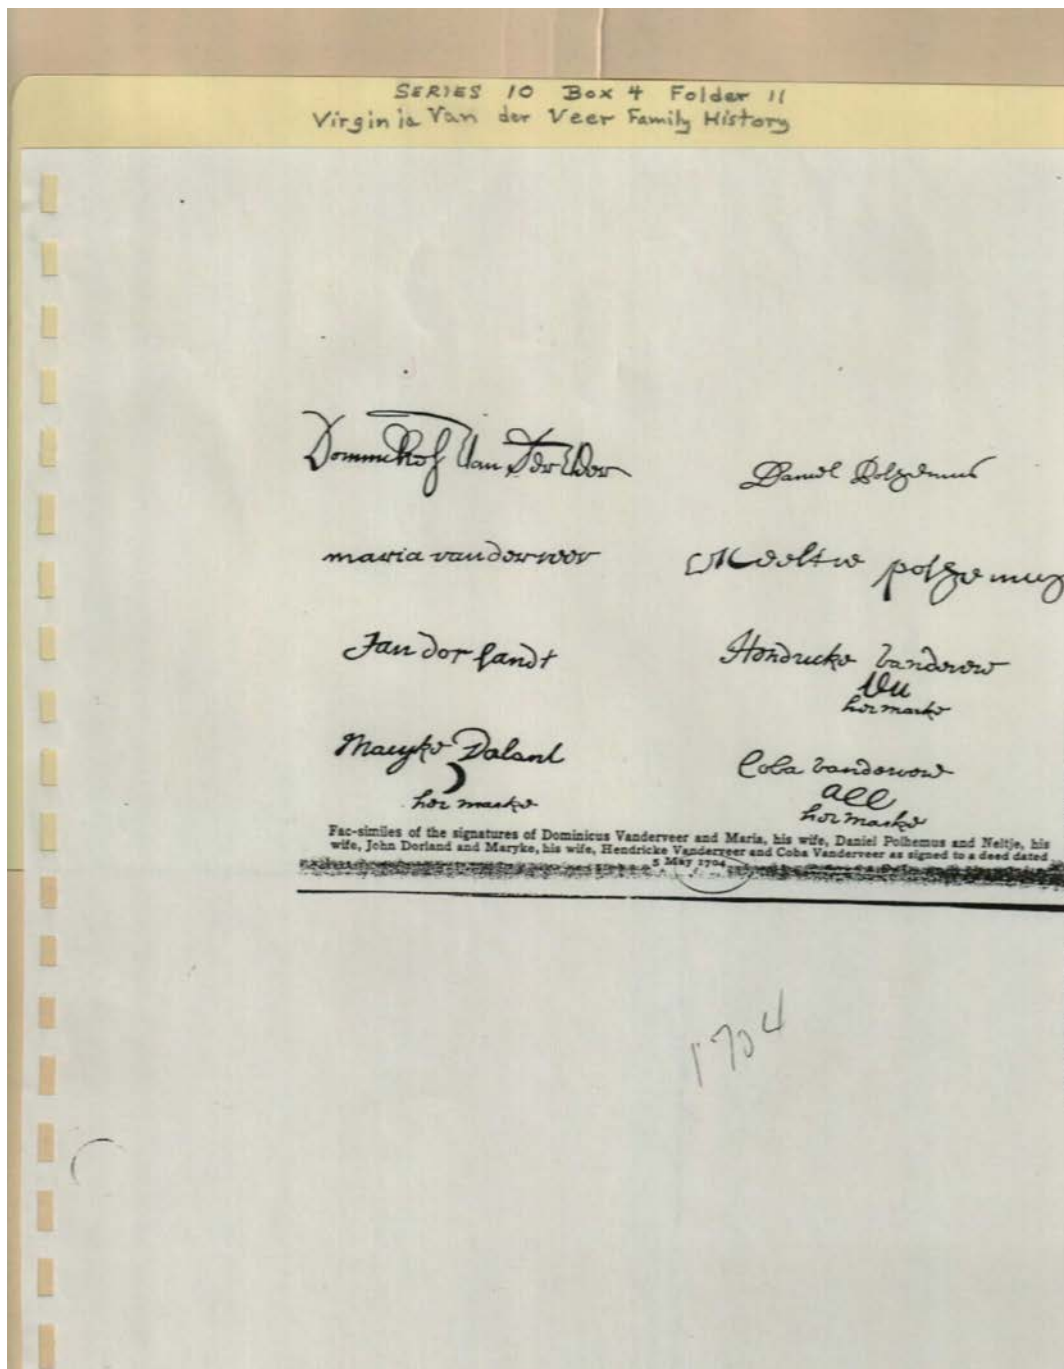 SERIES 10 Box 4 Folder 11
Virginia Van der Veer Family History
Van Der
Daniel Polhemus
maria vanderveer
polhemus
Jan dorlandt
Hendricke Vanderveer
her marke
Maryke Dalant
her marke
Coba Vanderveer
her marke
Fac-similes of the signatures of Dominicus Vanderveer and Maria, his wife, Daniel Polhemus and Neltje, his
wife, John Dorland and Maryke, his wife, Hendricke Vanderveer and Coba Vanderveer as signed to a deed dated
5 May 1704
1704